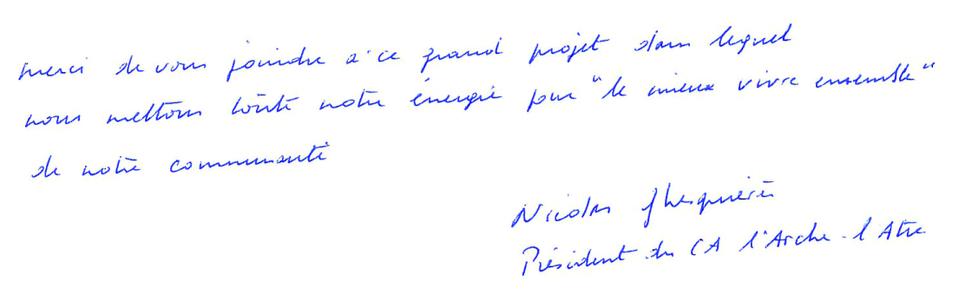 merci de vous joindre à ce grand projet dans lequel
nous mettons toute notre énergie pour "le mieux vivre ensemble"
de notre communauté
Nicolas Ghesquière
Président du CA l'Arche-l'Atre